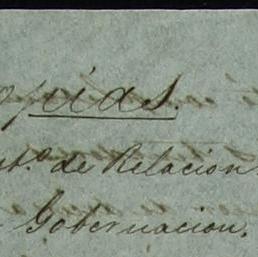 opias.
to. de Relacion
Gobernacion.